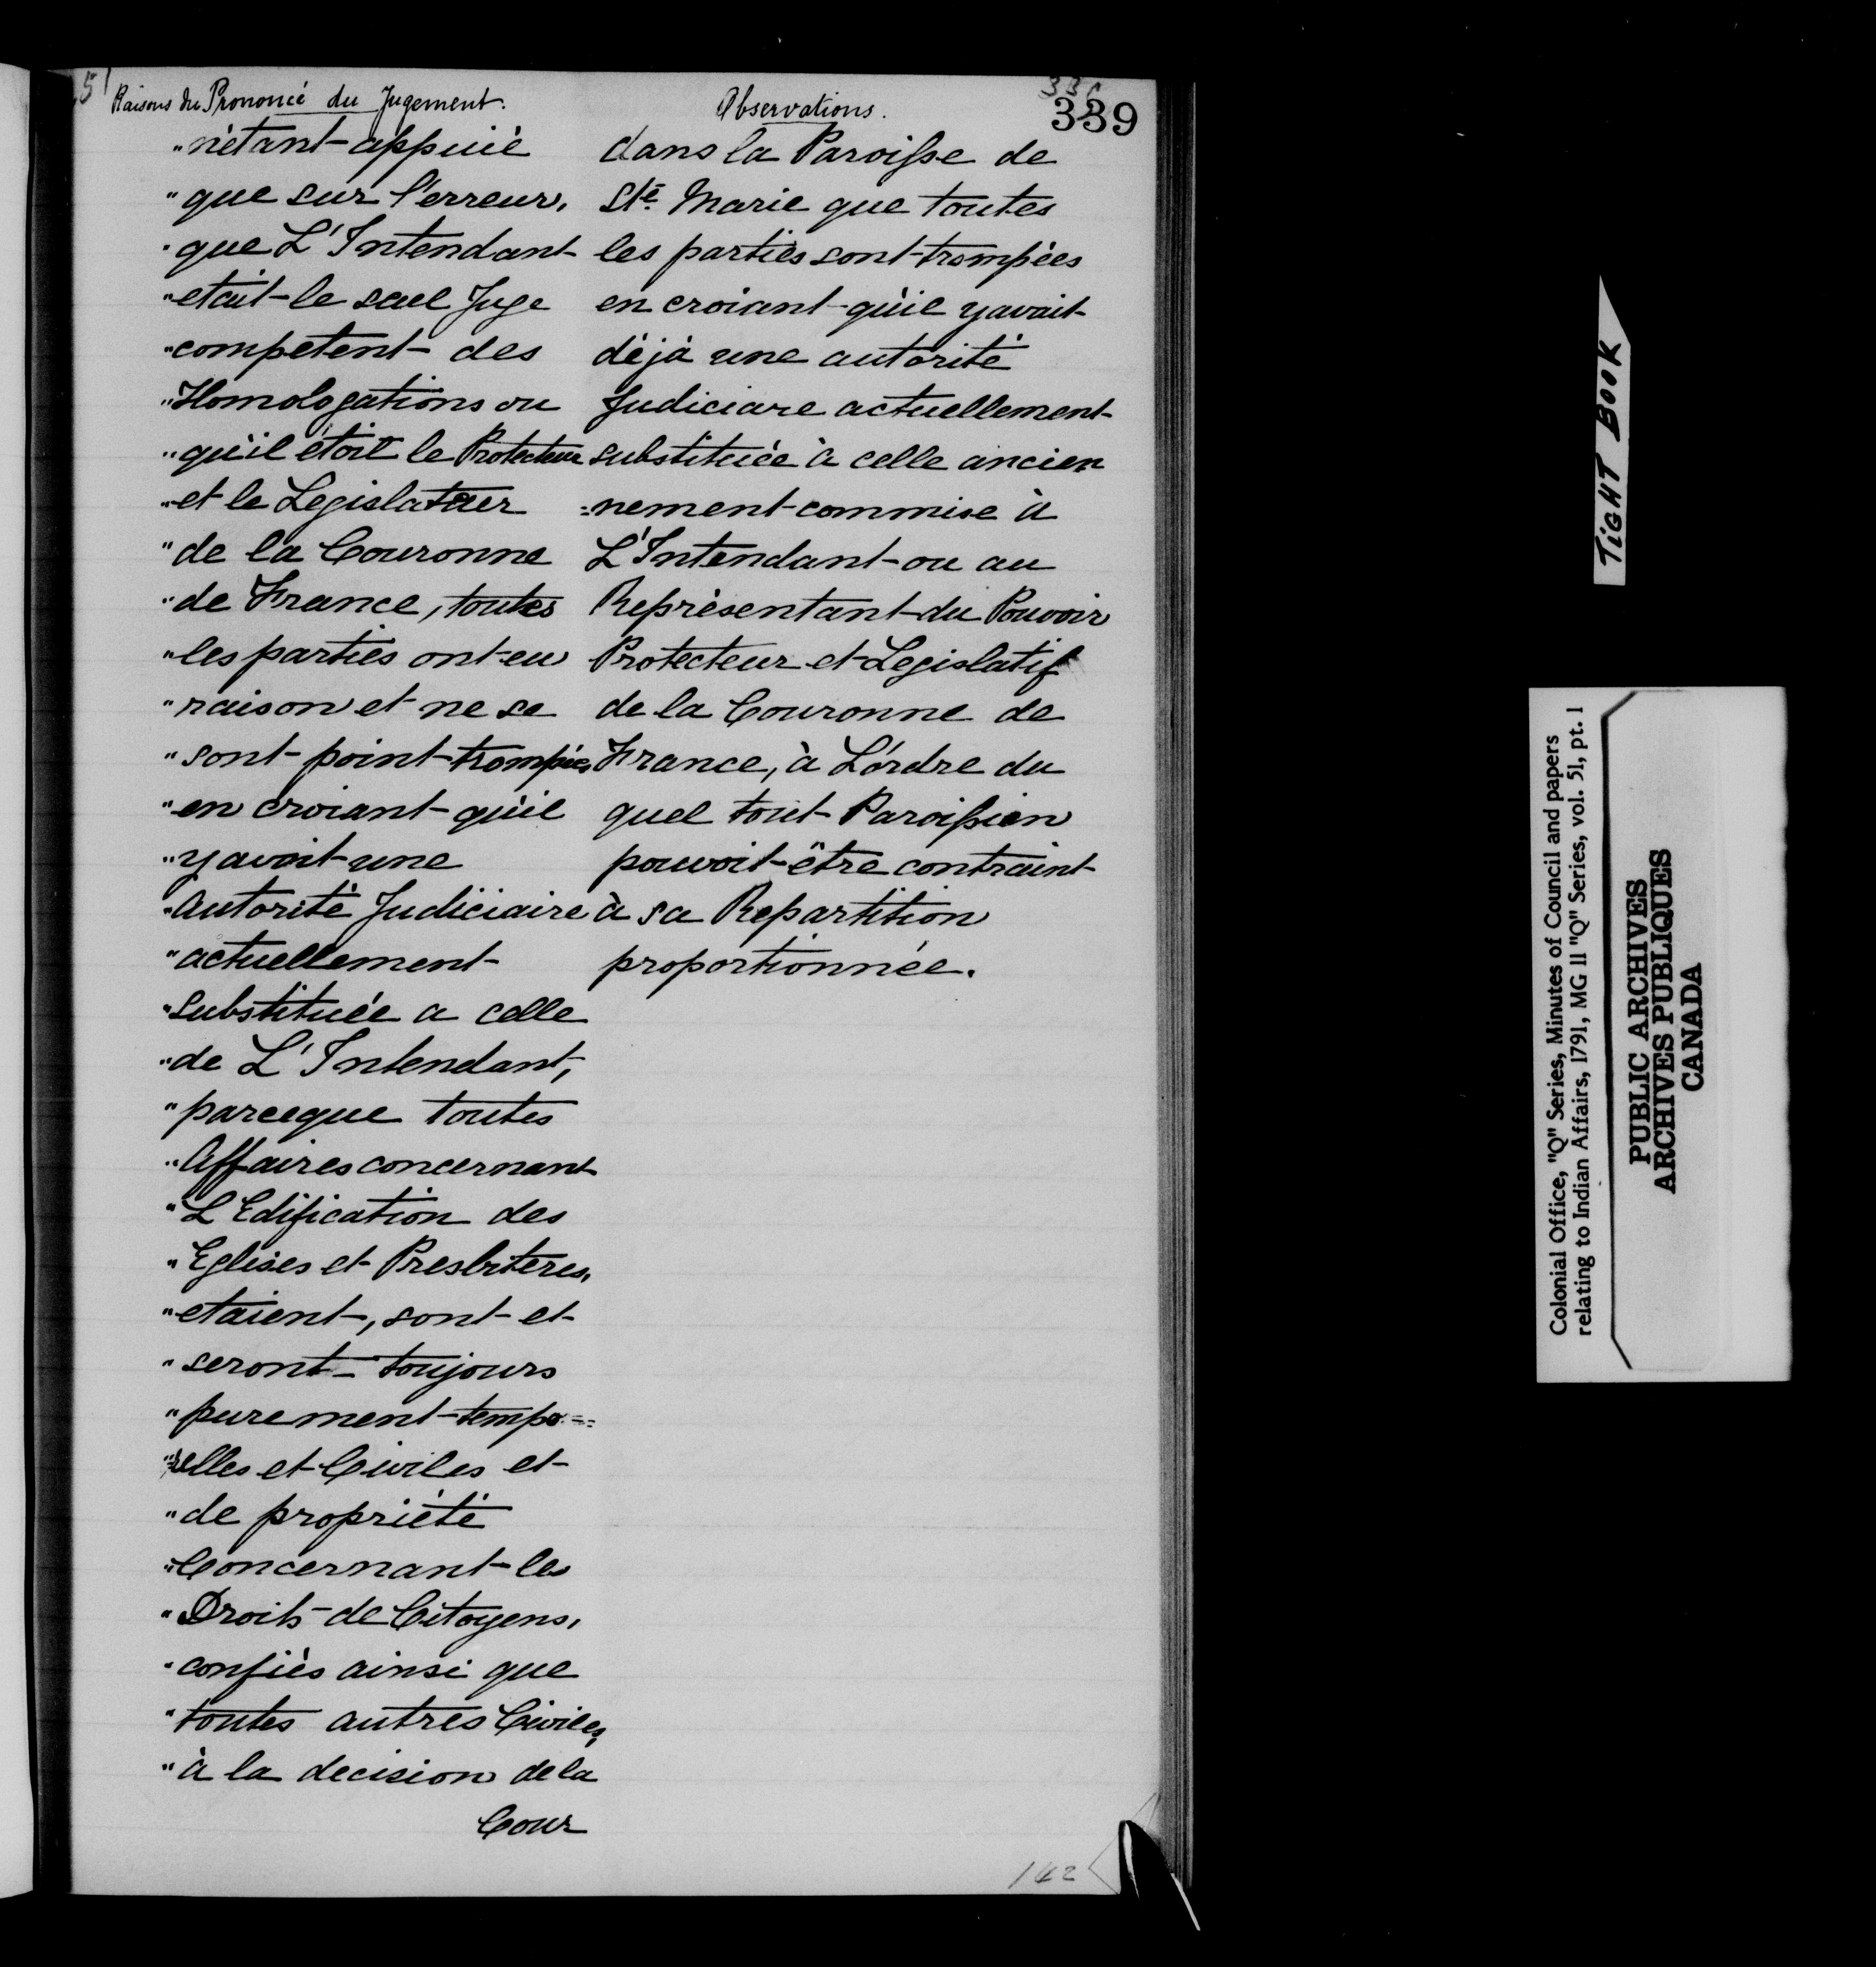 51
Raisons du Prononcé du Jugement.
"n'étant appuié
"que sur l'erreur,
"que L'Intendant
"etait le seul Juge
"competent des
"Homologations ou
"qu'il étoit le Protecteur
"et le Legislateur
"de la Couronne
"de France, toutes
"les parties ont eu
"raison et ne se
"sont point trompées
"en croiant qu'il
"y avoit une
"Autorité Judiciaire
"actuellement
"substituée a celle
"de L'Intendant,
"parceque toutes
"Affaires concernant
"L'Edification des
"Eglises et Presbiteres,
"etaient, sont et
"seront toujours
"purement tempo=
"relles et Civiles et
"de propriété
"Concernant les
"Droits de Citoyens,
"confiés ainsi que
"toutes autres Civiles,
"à la decision de la
Cour
Observations.
339
dans la Paroisse de
Ste. Marie que toutes
les parties sont trompées
en croiant qu'il y avait
déjà une autorité
Judiciare actuellement
substituée à celle ancien
=nement commise à
L'Intendant ou au
Représentant du Pouvoir
Protecteur et Legislatif
de la Couronne de
France, à L'ordre du
quel tout Paroissien
pouvoit être contraint
à sa Repartition
proportionnée.
142
TIGHT BOOK
Colonial Office, "Q" Series, Minutes of Council and papers
relating to Indian Affairs, 1791, MG 11 "Q" Series, vol. 51, pt. 1
PUBLIC ARCHIVES
ARCHIVES PUBLIQUES
CANADA